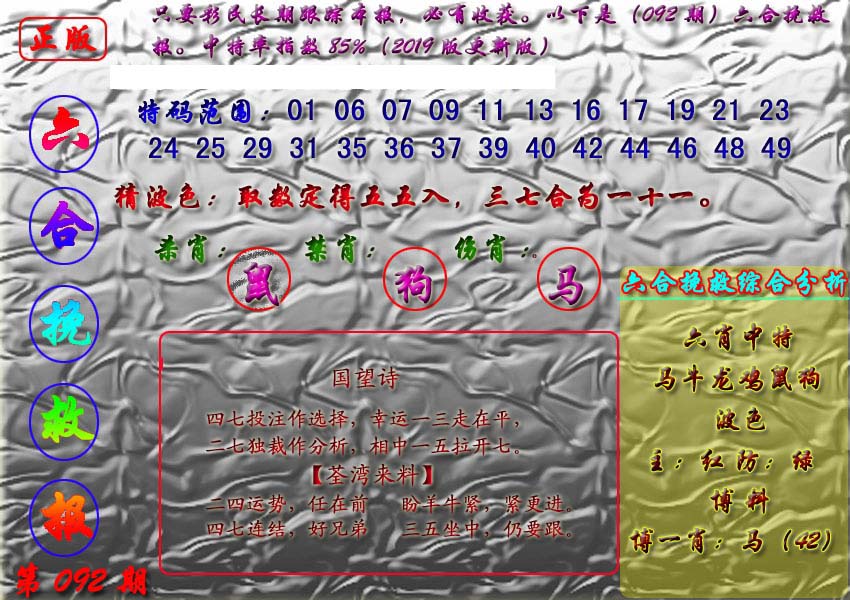 正版
只要彩民长期跟踪本报，必有收获。以下是（092期）六合挽救
报。中特率指数85%（2019版更新版）
六
合
挽
救
报
第092期
特码范围：01 06 07 09 11 13 16 17 19 21 23
24 25 29 31 35 36 37 39 40 42 44 46 48 49
猜波色：取数定得五五入，三七合为一十一。
杀肖： 禁肖： 伤肖：。
鼠 狗 马
国望诗
四七投注作选择，幸运一三走在平，
二七独裁作分析，相中一五拉开七。
【荃湾来料】
二四运势，任在前 盼羊牛紧，紧更进。
四七连结，好兄弟 三五坐中，仍要跟。
六合挽救综合分析
六肖中特
马牛龙鸡鼠狗
波色
主：红防：绿
博料
博一肖：马（42）